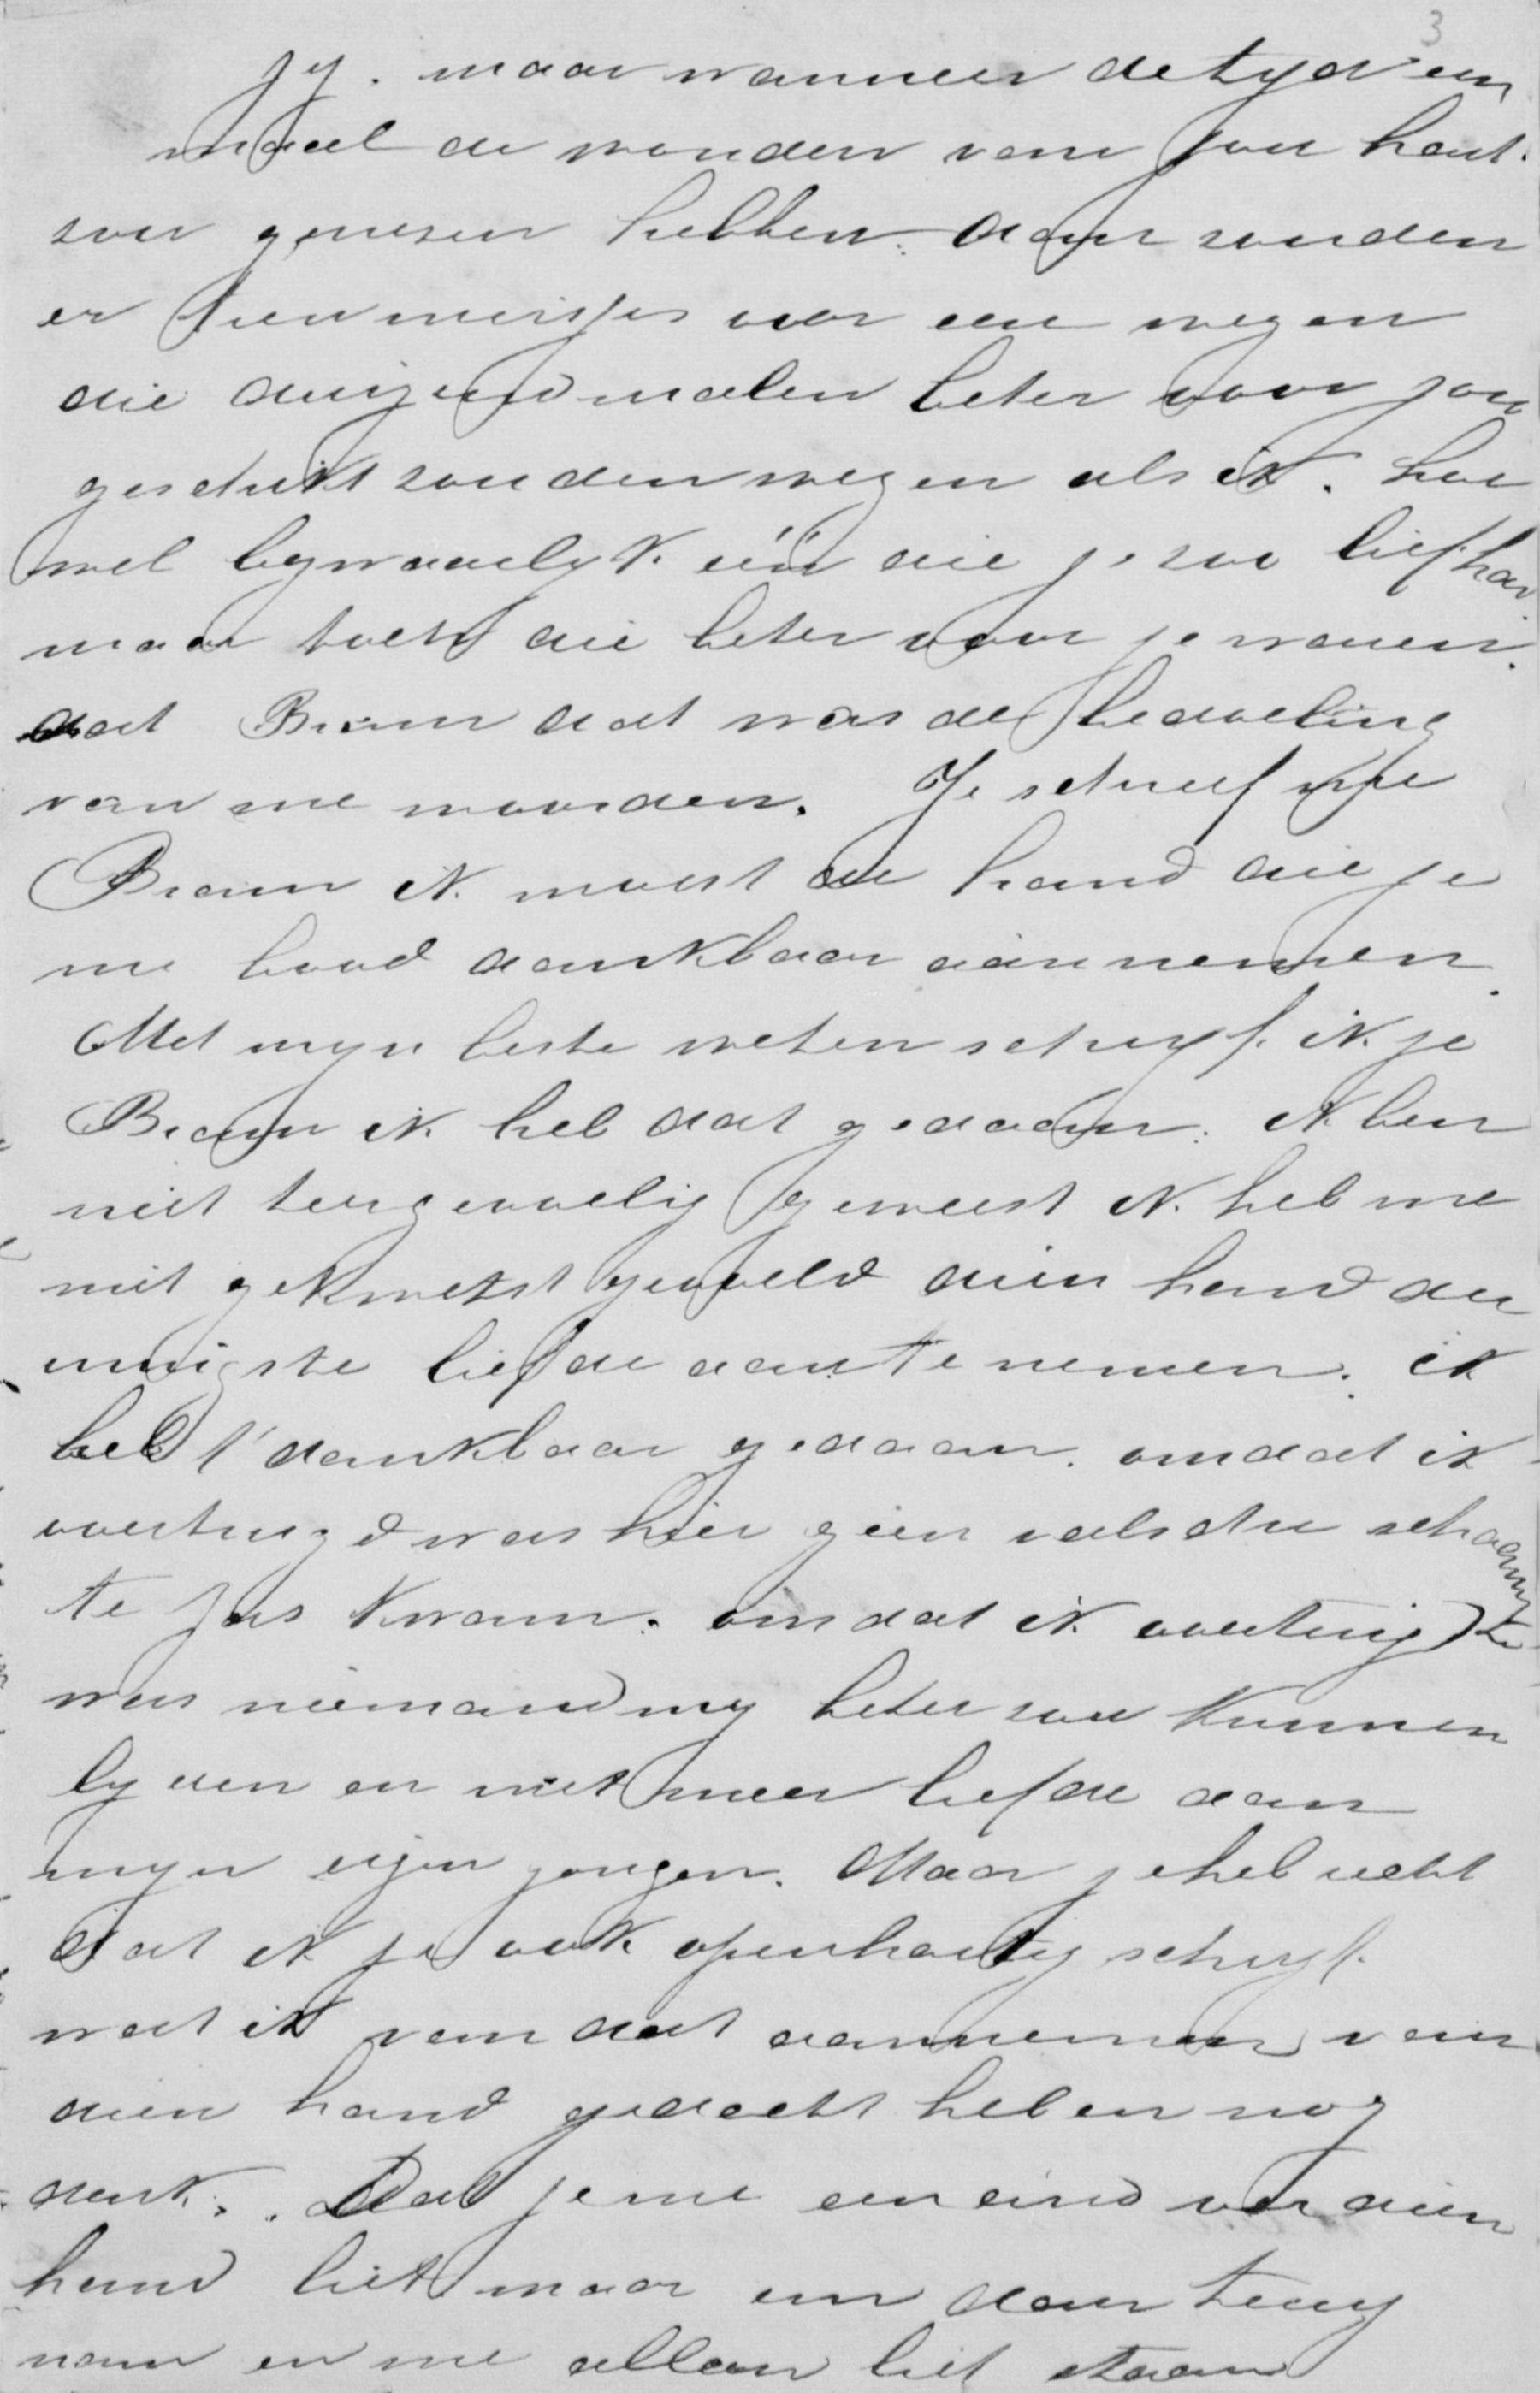 3
jy. maar wanneer de tyd een
maal de wonden van jou hart.
zou genezen hebben. dan zouden
er tien meisjes voor een wezen
die duizendmalen beter voor jou
geschikt zouden wezen als ik. hoe
wel bezwaarlyk één die je zoo lief had
maar toch die beter voor je waren.
dat Bram dat was de bedoeling
van me woorden. Je schreef me
Bram ik moest de hand die je
me bood dankbaar aannemen.
Met myn beste weten schryf ik je
Bram ik heb dat gedaan. ik ben
niet teergevoelig geweest ik heb me
niet gekwetst gevoeld dien hand de
innigste liefde aan te nemen. ik
heb t' dankbaar gedaan. omdat ik
overtuigd was hier geen valsche schaamte
te pas kwam. omdat ik overtuigd
was niemand my beter zou kunnen
lyden en met meer liefde dan
myn eigen jongen. Maar je heb recht
dat ik je ook openhartig schryf.
wat ik van dat aannemen van
dien hand gedacht heb en nog
denk. Dat je me een eind ver dien
hand liet maar em dan terug
nam en me alleen liet staan